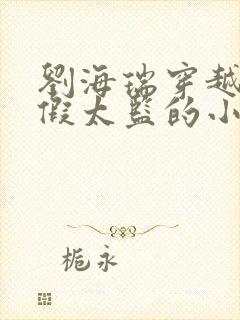 劉海瑞穿越
假太監的小
栀永